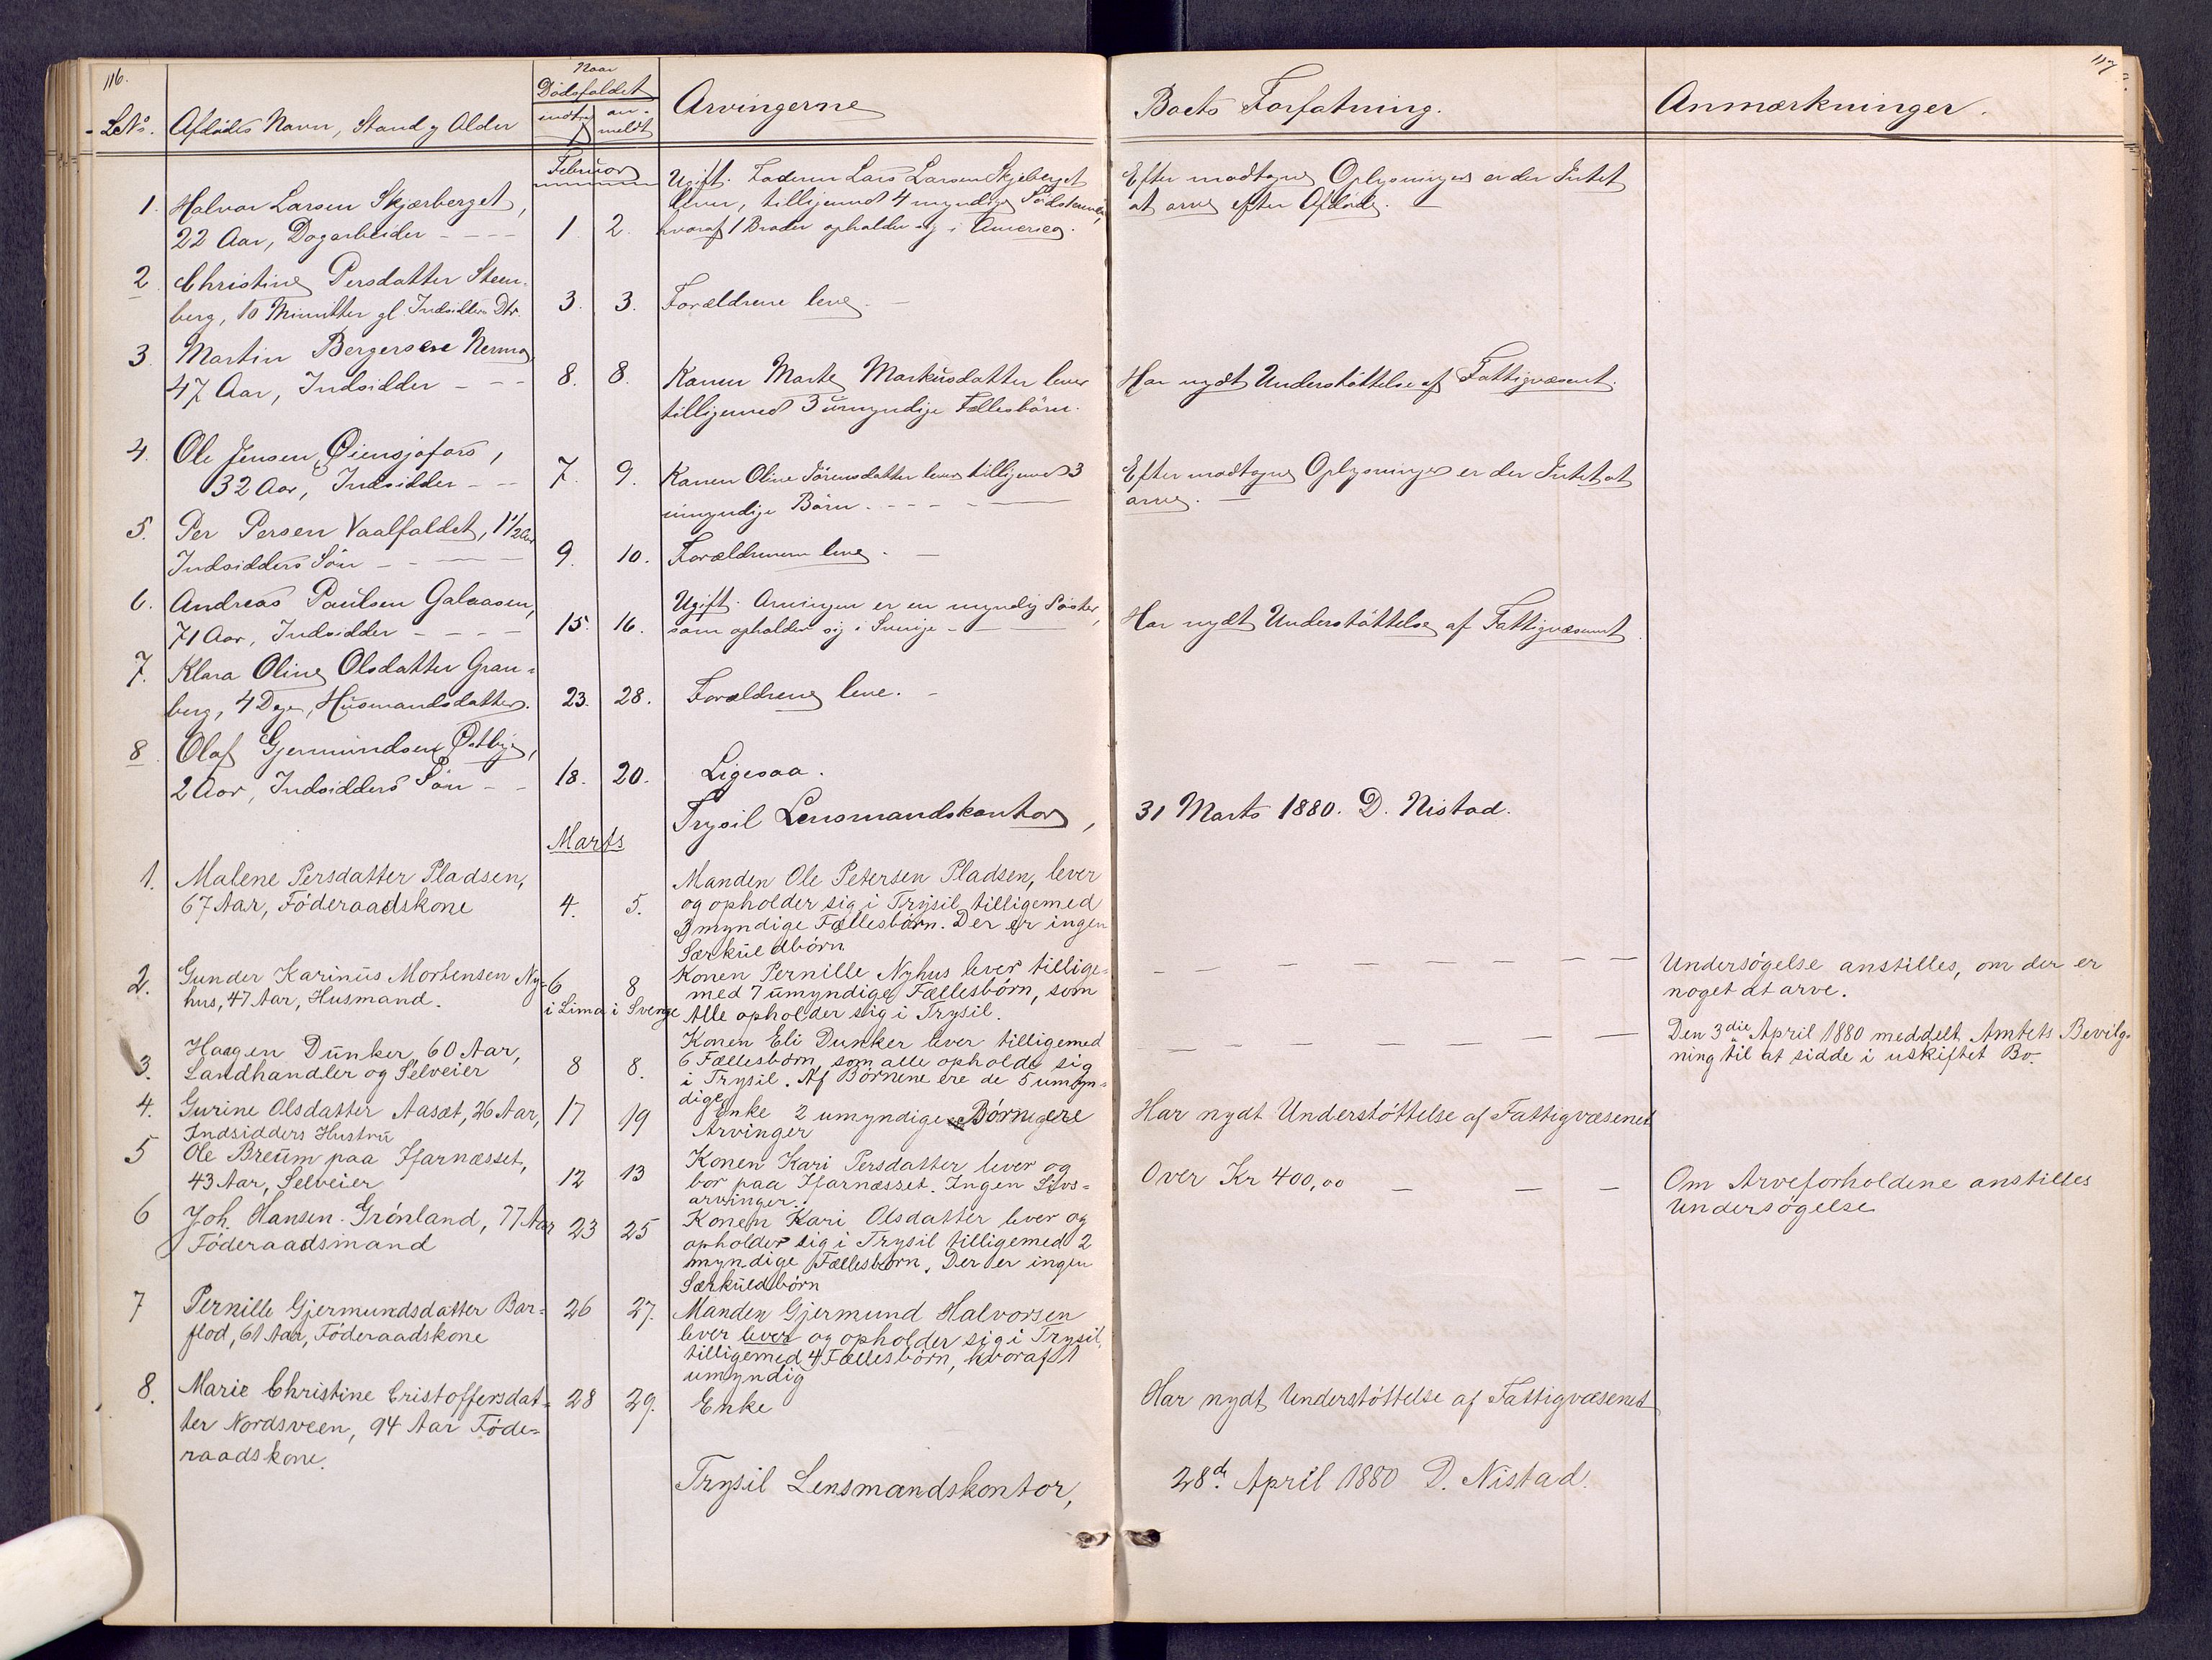 116.
117
LNo. Afdødes Navn, Stand og Alder
Naar
Dødsfaldet
indtraf an-
meldt
Arvingerne
Boets Forfatning.
Anmærkninger.
Februar
1. Halvor Larsen Skjærberget,
22 Aar, Dagarbeider - - - 1 2.
Ugift. Faderen Lars Larsen Skjeberget
lever, tilligemed 4 myndige Södskende,
hvoraf 1 Broder opholder sig i America.
Efter modtagne Oplysninger er der Intet
at arve efter Afdøde. —
2. Christine Persdatter Steen-
berg, 10 Minutter gl. Indsidders Dtr. 3. 3. Forældrene leve. —
3 Martin Bergersen Nermo
47 Aar, Indsidder - - - 8. 8.
Konen Marte Markusdatter lever
tilligemed 3 umyndige Fællesbörn.
Har nydt Understöttelse af Fattigvæsenet.
4. Ole Jensen Øiensjøfors,
32 Aar, Indsidder - - 7. 9.
Konen Oline Sörensdatter lever tilligemed 3
umyndige Börn. - - - -
Efter modtagne Oplysninger er der Intet at
arve. —
5. Per Persen Vaalfaldet, 1 1/2 Aar
Indsidders Sön - - — 9. 10. Forældrenene leve. —
6. Andreas Paulsen Galaasen,
71 Aar, Indsidder - - - - 15. 16.
Ugift. Arvingen er en myndig Söster,
som opholder sig i Sverige - —
Har nydt Understöttelse af Fattigvæsenet.
7. Klara Oline Olsdatter Gran-
berg, 4 Dage, Husmandsdatter. 23. 28. Forældrene leve. -
8. Olaf Gjermundsen Østbye,
2 Aar, Indsidders Sön - - 18. 20. Ligesaa.
Trysil Lensmandskontor, 31 Marts 1880. D. Nistad.
Marts
1. Malene Persdatter Pladsen,
67 Aar, Föderaadskone 4. 5.
Manden Ole Petersen Pladsen, lever
og opholder sig i Trysil tilligemed
3 myndige Fællesbörn. Der er ingen
Særkuldbörn
2. Gunder Karinus Mortensen Ny-
hus, 47 Aar, Husmand.
6 8
i Lima i Sverge
Konen Pernille Nyhus lever tillige-
med 7 umyndige Fællesbörn, som
Alle opholder sig i Trysil.
— — — — — — — —
Undersögelse anstilles, om der er
noget at arve.
3. Haagen Dunker, 60 Aar,
Landhandler og Selveier 8 8.
Konen Eli Dunker lever tilligemed
6 Fællesbörn, som alle opholde sig
i Trysil. Af Börnene ere de 5 umyn-
dige
— — — — — — — —
Den 3die April 1880 meddelt Amtets Bevilg-
ning til at sidde i uskiftet Bo.
4. Gurine Olsdatter Aasæt, 26 Aar,
Indsidders Hustru 17 19
Enke 2 umyndige Börn ere
Arvinger
Har nydt Understöttelse af Fattigvæsenet
5 Ole Breum paa Ifarnæsset,
43 Aar, Selveier 12 13
Konen Kari Persdatter lever og
bor paa Ifarnæsset. Ingen Livs-
arvinger.
Over Kr 400,00 — — —
Om Arveforholdene anstilles
Undersögelse
6 Joh. Hansen Grönland, 77 Aar
Föderaadsmand 23 25
Konen Kari Olsdatter lever og
opholder sig i Trysil tilligemed 2
myndige Fællesbörn. Der er ingen
Særkuldbörn
7 Pernille Gjermundsdatter Bar-
flod, 61 Aar, Föderaadskone 26 27.
Manden Gjermund Halvorsen
lever lever og opholder sig i Trysil,
tilligemed 4 Fællesbörn, hvoraf 1
umyndig
8. Marie Christine Cristoffersdat-
ter Nordsveen, 94 Aar Föde-
raadskone. 28 29. Enke
Har nydt Understöttelse af Fattigvæsenet
Trysil Lensmandskontor, 28de April 1880 D. Nistad.